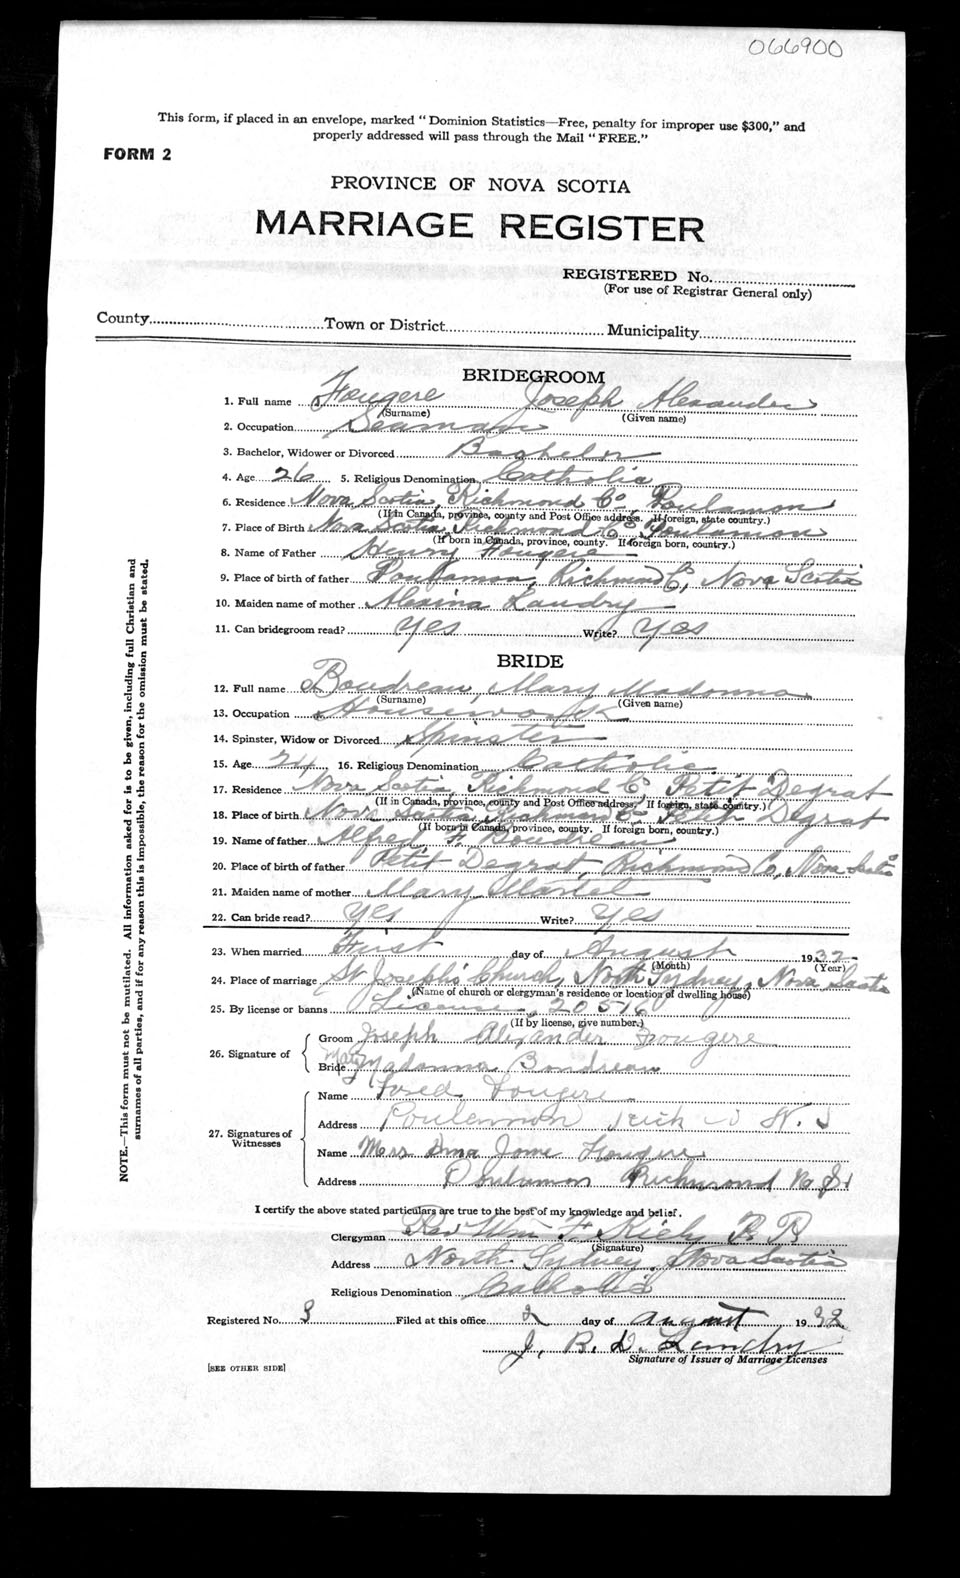 066900
This form, if placed in an envelope, marked “ Dominion Statistics—Free, penalty for improper use $300,” and
properly addressed will pass through the Mail “ FREE.”
FORM 2
PROVINCE OF NOVA SCOTIA
MARRIAGE REGISTER
REGISTERED No.
(For use of Registrar General only)
County Town or District Municipality
BRIDEGROOM
1. Full name Fougere Joseph Alexander
(Surname) (Given name)
2. Occupation Seaman
3. Bachelor, Widower or Divorced Bachelor
4. Age 26 5. Religious Denomination Catholic
6. Residence Nova Scotia, Richmond Co, Poulamon
(If in Canada, province, county and Post Office address. If foreign, state country.)
7. Place of Birth Nova Scotia, Richmond Co Poulamon
(If born in Canada, province, county. If foreign born, country.)
8. Name of Father Henry Fougere
9. Place of birth of father Poulamon, Richmond Co, Nova Scotia
10. Maiden name of mother Alexina Landry
11. Can bridegroom read? yes Write? yes
BRIDE
12. Full name Boudreau Mary Madonna
(Surname) (Given name)
13. Occupation Housework
14. Spinster, Widow or Divorced Spinster
15. Age 24 16. Religious Denomination Catholic
17. Residence Nova Scotia, Richmond Co, Petit Degrat
(If in Canada, province, county and Post Office address. If foreign, state country.)
18. Place of birth Nova Scotia Richmond Co Petit Degrat
(If born in Canada, province, county. If foreign born, country.)
19. Name of father Alfred F. Boudreau
20. Place of birth of father Petit Degrat, Richmond Co, Nova Scotia
21. Maiden name of mother Mary Martel
22. Can bride read? yes Write? yes
23. When married First day of August 1932
(Month) (Year)
24. Place of marriage St Joseph's Church, North Sydney, Nova Scotia
(Name of church or clergyman's residence or location of dwelling house)
25. By license or banns License, 20516
(If by license, give number.)
26. Signature of
Groom Joseph Alexander Fougere
Bride Mary Madonna Boudreau
27. Signatures of
Witnesses
Name Fougere
Address Poulammon Rich N. S
Name Mrs Fougere
Address Poulamon Richmond N S
I certify the above stated particulars are true to the best of my knowledge and belief.
Clergyman Rev Wm F. Kiely P. P.
(Signature)
Address North Sydney, Nova Scotia
Religious Denomination Catholic
Registered No. 3 Filed at this office 2 day of August 1932
J. B. D. Landry
Signature of Issuer of Marriage Licenses
[SEE OTHER SIDE]
NOTE.—This form must not be mutilated. All information asked for is to be given, including full Christian and
surnames of all parties, and if for any reason this is impossible, the reason for the omission must be stated.